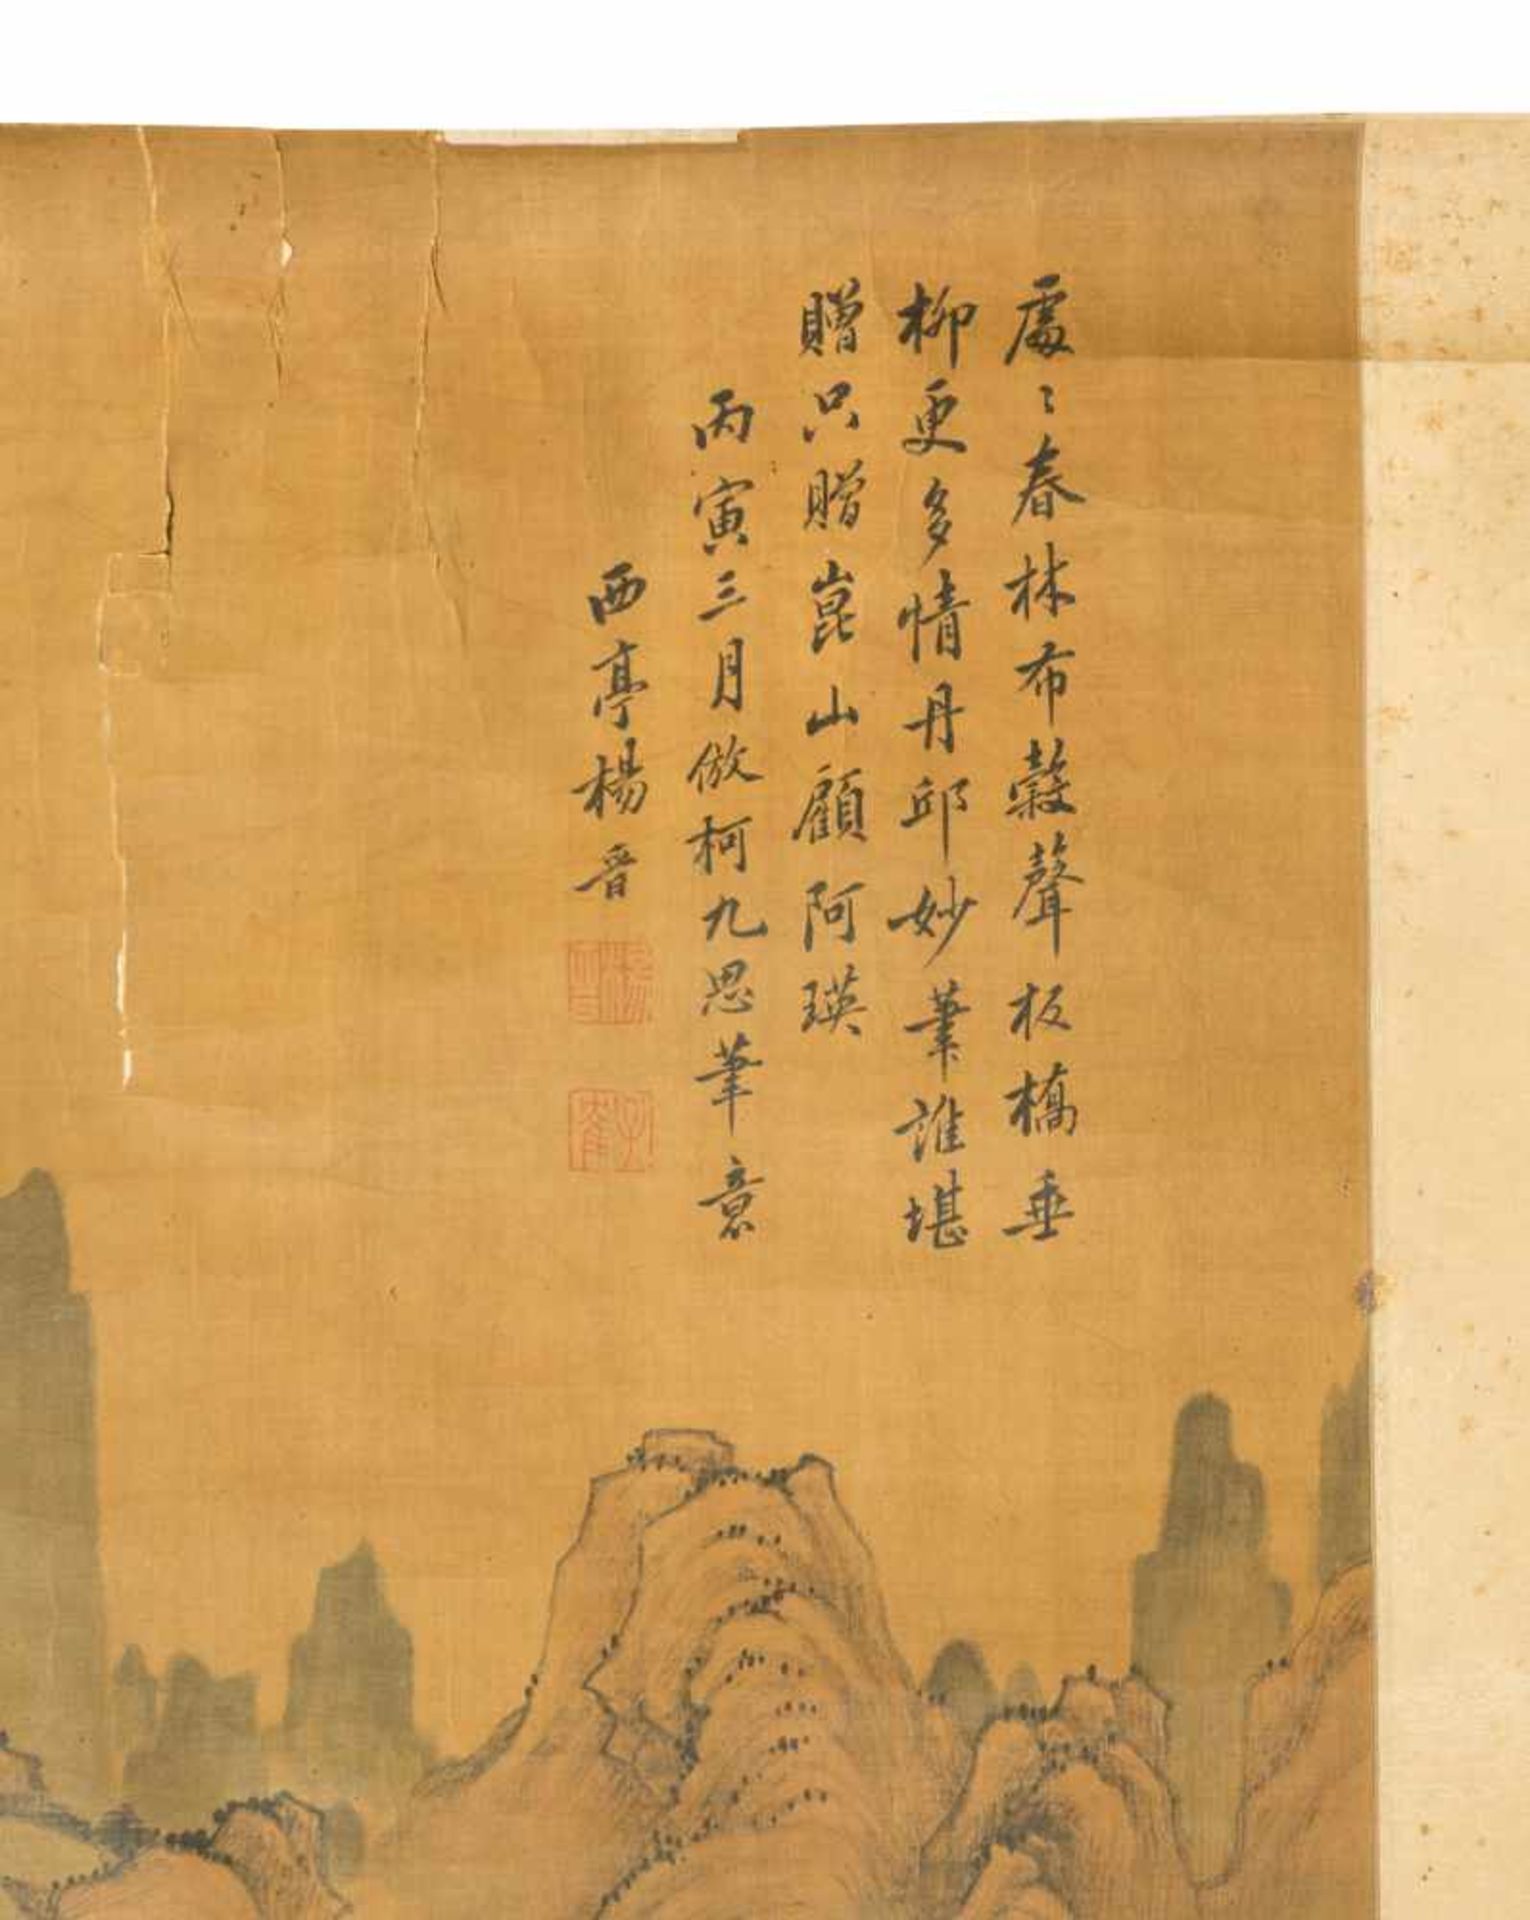 處〻春林布穀聲板橋垂
柳更多情丹邱妙筆誰堪
贈只贈崑山顧阿瑛
丙寅三月倣柯九思筆意
西亭楊晉